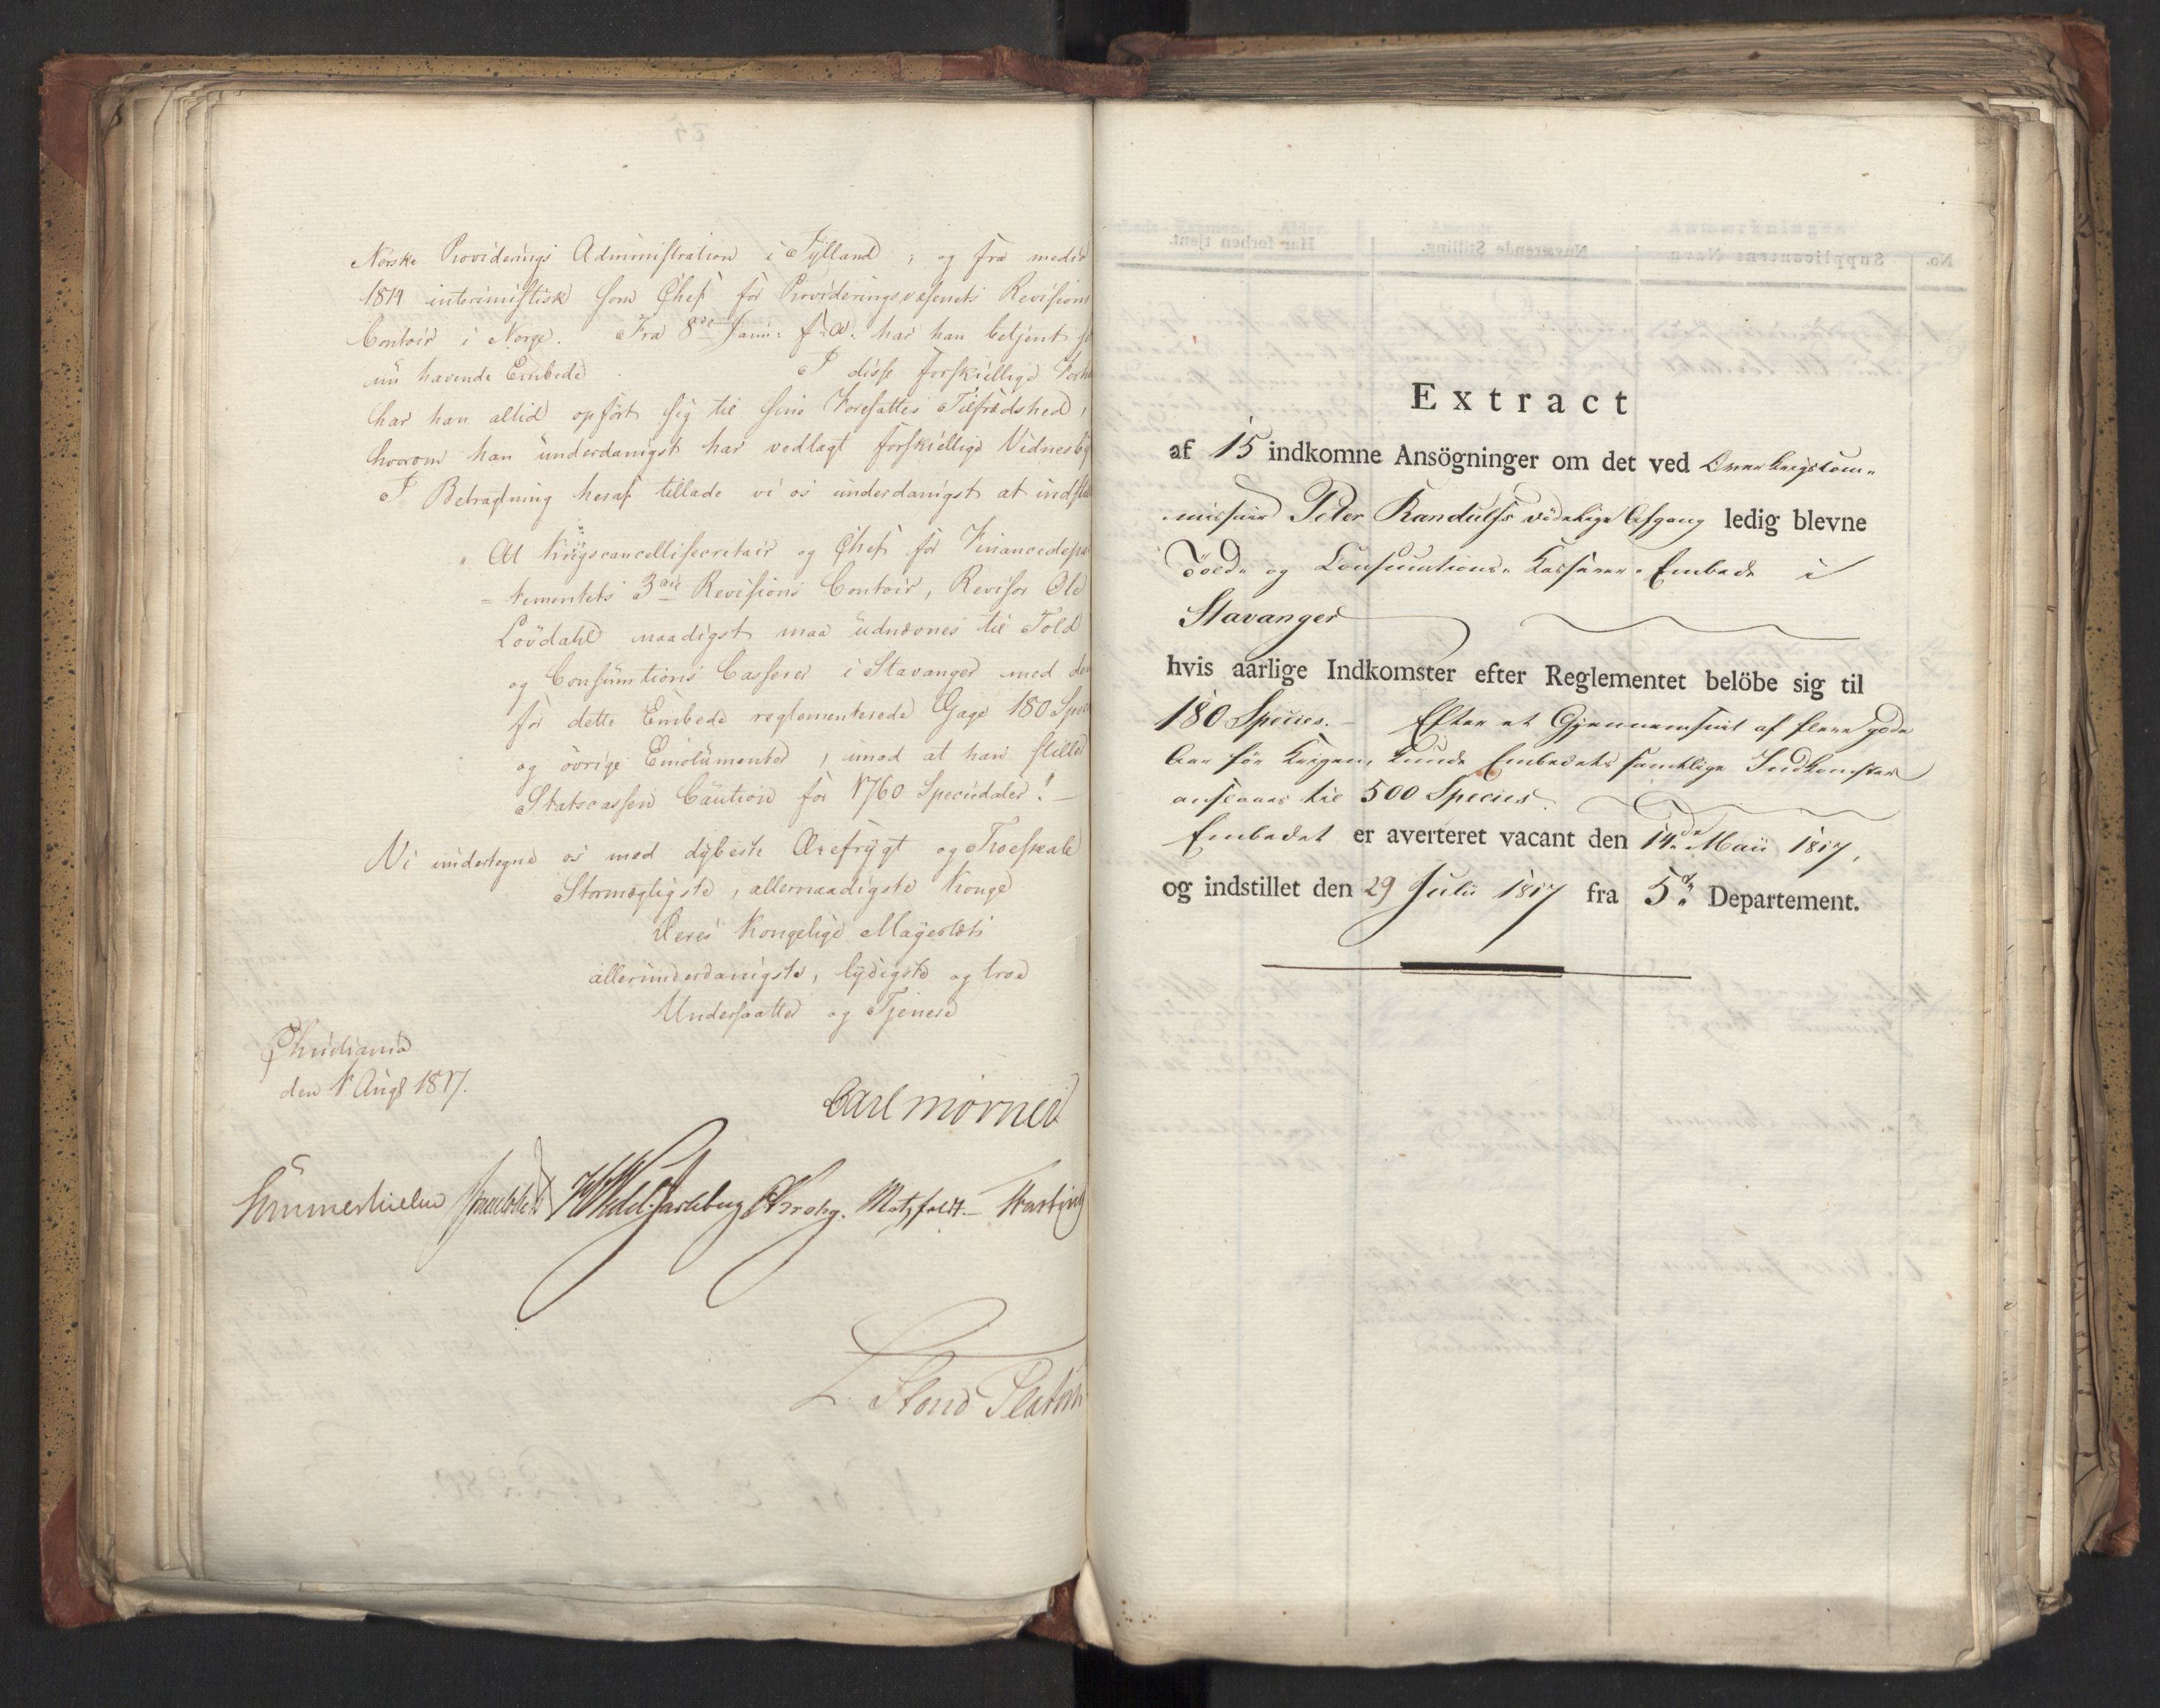 Norske Providerings Administration i Jylland, og fra medio
1814 interimistisk som Chef for Provideringsvæsenets Revisions
Contoir i Norge. Fra 8de Janu: f: A: har han betjent
nu havende Embede. I disse forskiellige
har han altid opført sig til sine Foresattes Tilfredshed,
hvorom han underdanigst har vedlagt forskiellige
I Betragtning heraf tillade vi os underdanigst at
" At Krigscancellisecretair og Chef for Financedepar
= tementets 3die Revisions Contoir, Revisor Ole
Lövdahl naadigst maa udnævnes til Told
og Consumtions Casserer i Stavanger med den
for dette Embede reglementerede Gage 180 Spec
og övrige Emolumenter, imod at han stiller
Statscassen Caution for 1760 Speciedaler! —
Vi undertegne os med dybeste Ærefrygt og Troeskab
Stormægtigste, allernaadigste Konge
Deres Kongelige Majestæts
allerunderdanigste, lydigste og troe
Undersaatter og Tjenere
Christiania
den 1 Aug 1817.
Carl Mörner
Sommerhielm H Wedel Jarlsberg C Krohg. Motzfeldt.
L. Stoud Platou
Extract
af 15 indkomne Ansögninger om det ved Overkrigskom-
missair Peter Randulfs dödelige Afgang ledig blevne
Told- og Consumtions- Kasserer- Embede i
Stavanger
hvis aarlige Indkomster efter Reglementet belöbe sig til
180 Species. — Efter et Gjennemsnit af flere gode
Aar för Krigen, kunde Embedets samtlige Indkomster
ansees til 500 Species.
Embedet er averteret vacant den 14de Maii 1817,
og indstillet den 29 Julii 1817 fra 5te Departement.